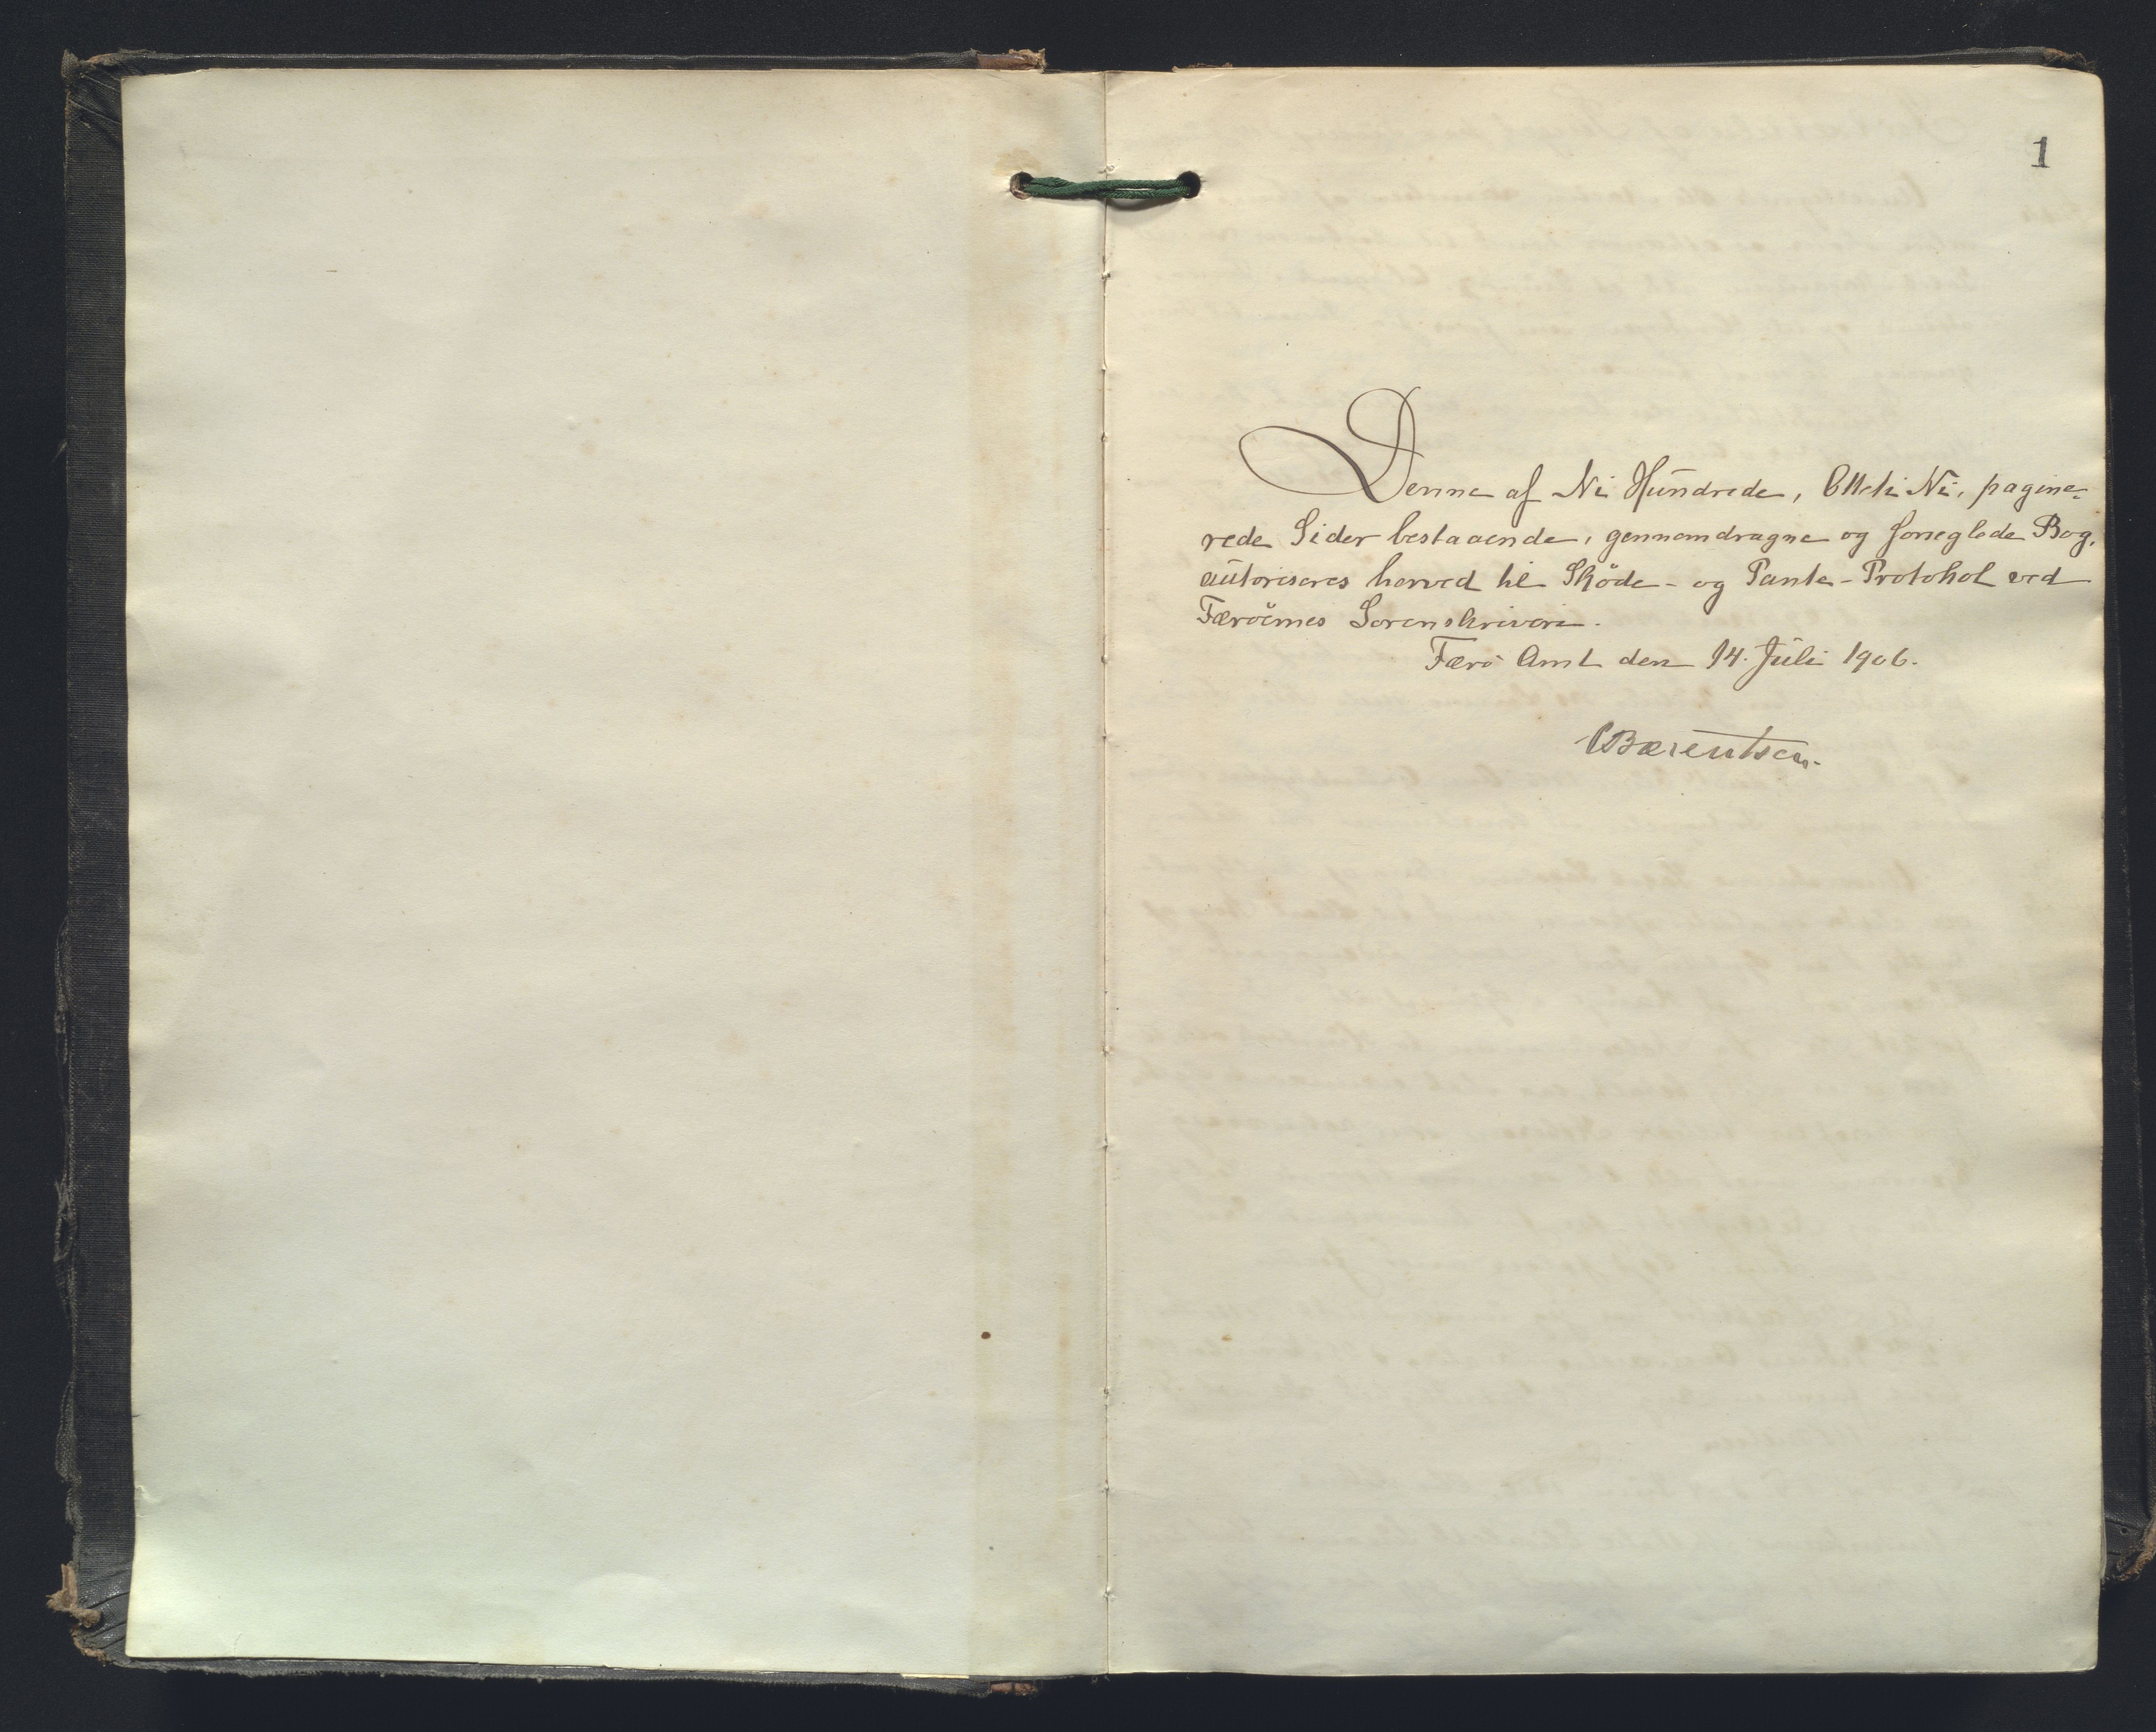 1
Denne af Ni Hundrede, Otteti Ni, pagine-
rede Sider bestaaende, gennemdragne og forseglede Bog,
autoriseres herved til Skøde- og Pante-Protokol ved
Færøernes Sorenskriveri.
Færø Amt den 14. Juli 1906.
CBærentsen.